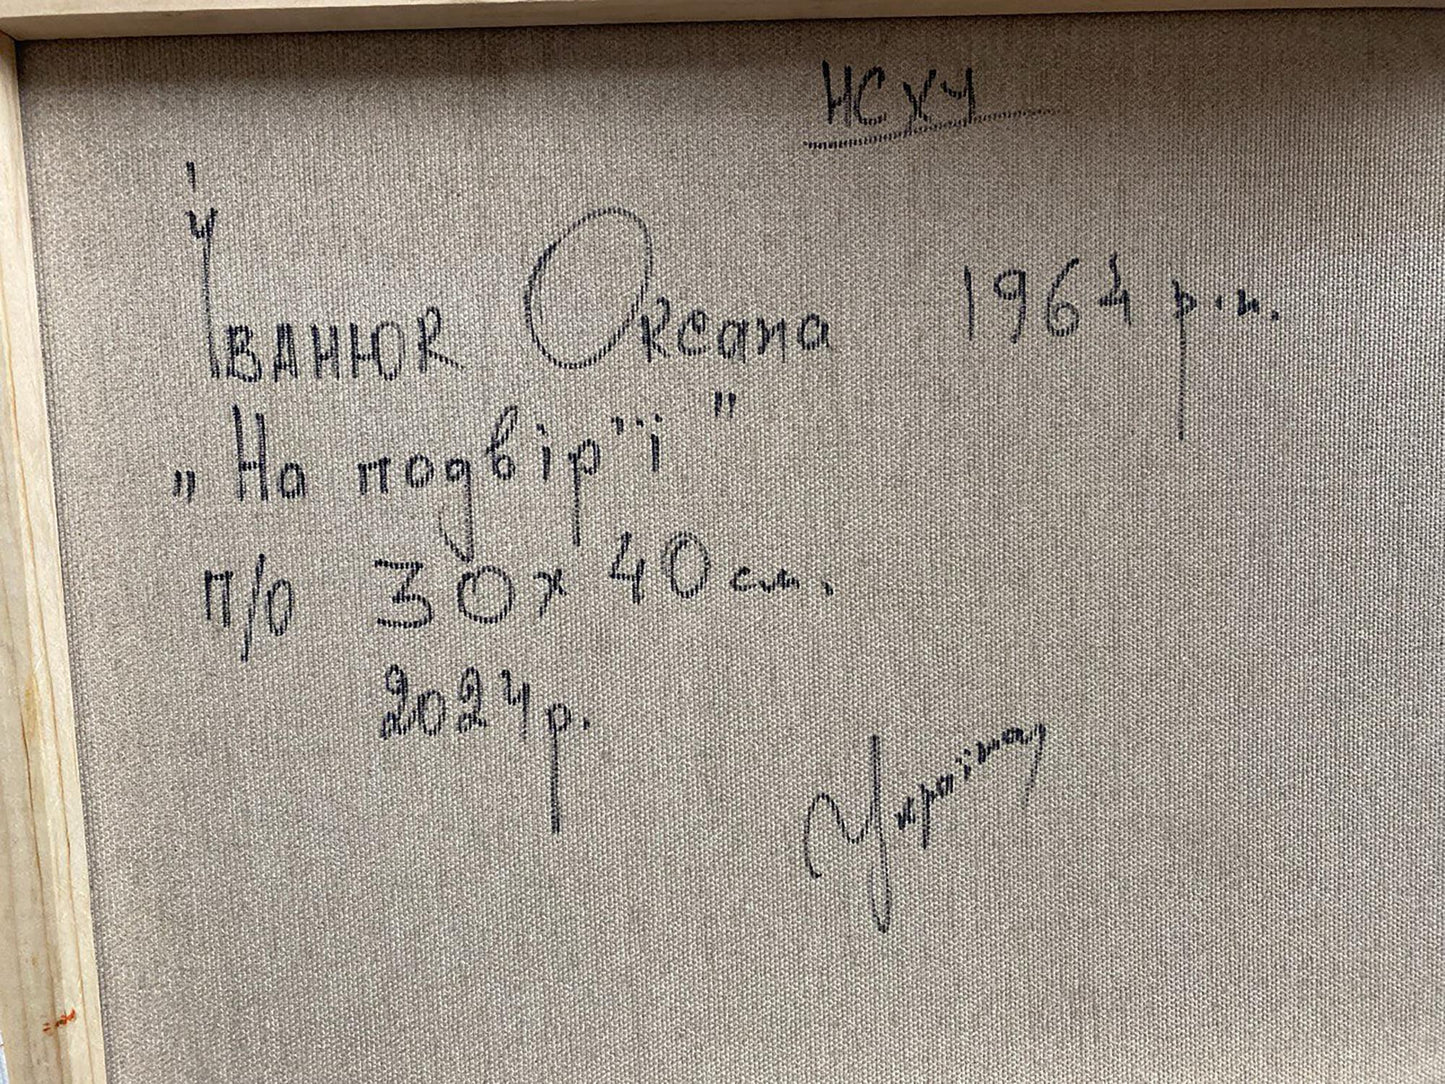 НСХУ
Іванюк Оксана 1964 р.н.
„На подвір'ї"
п/о 30х40 см.
2024 р.
Україна,